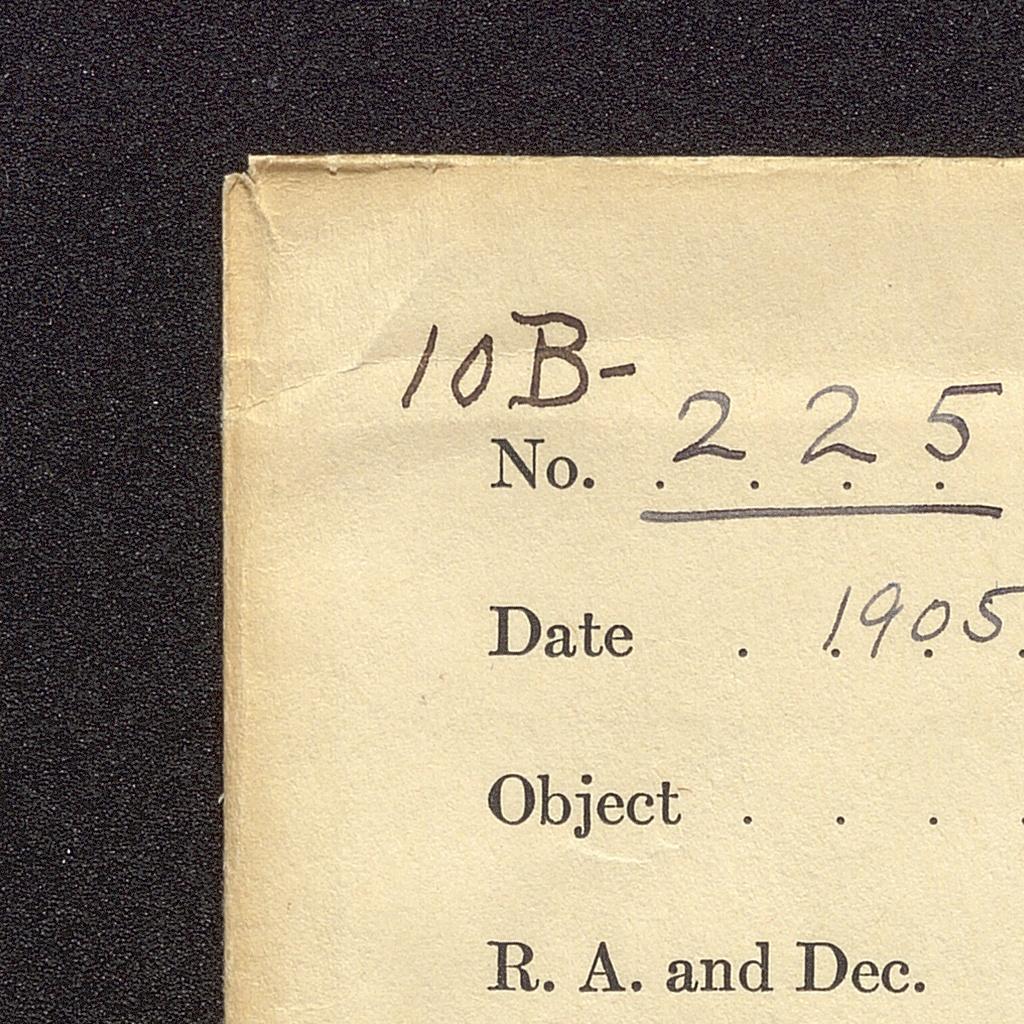 10B-
No. 225
Date . 1905
Object . . . .
R. A. and Dec.